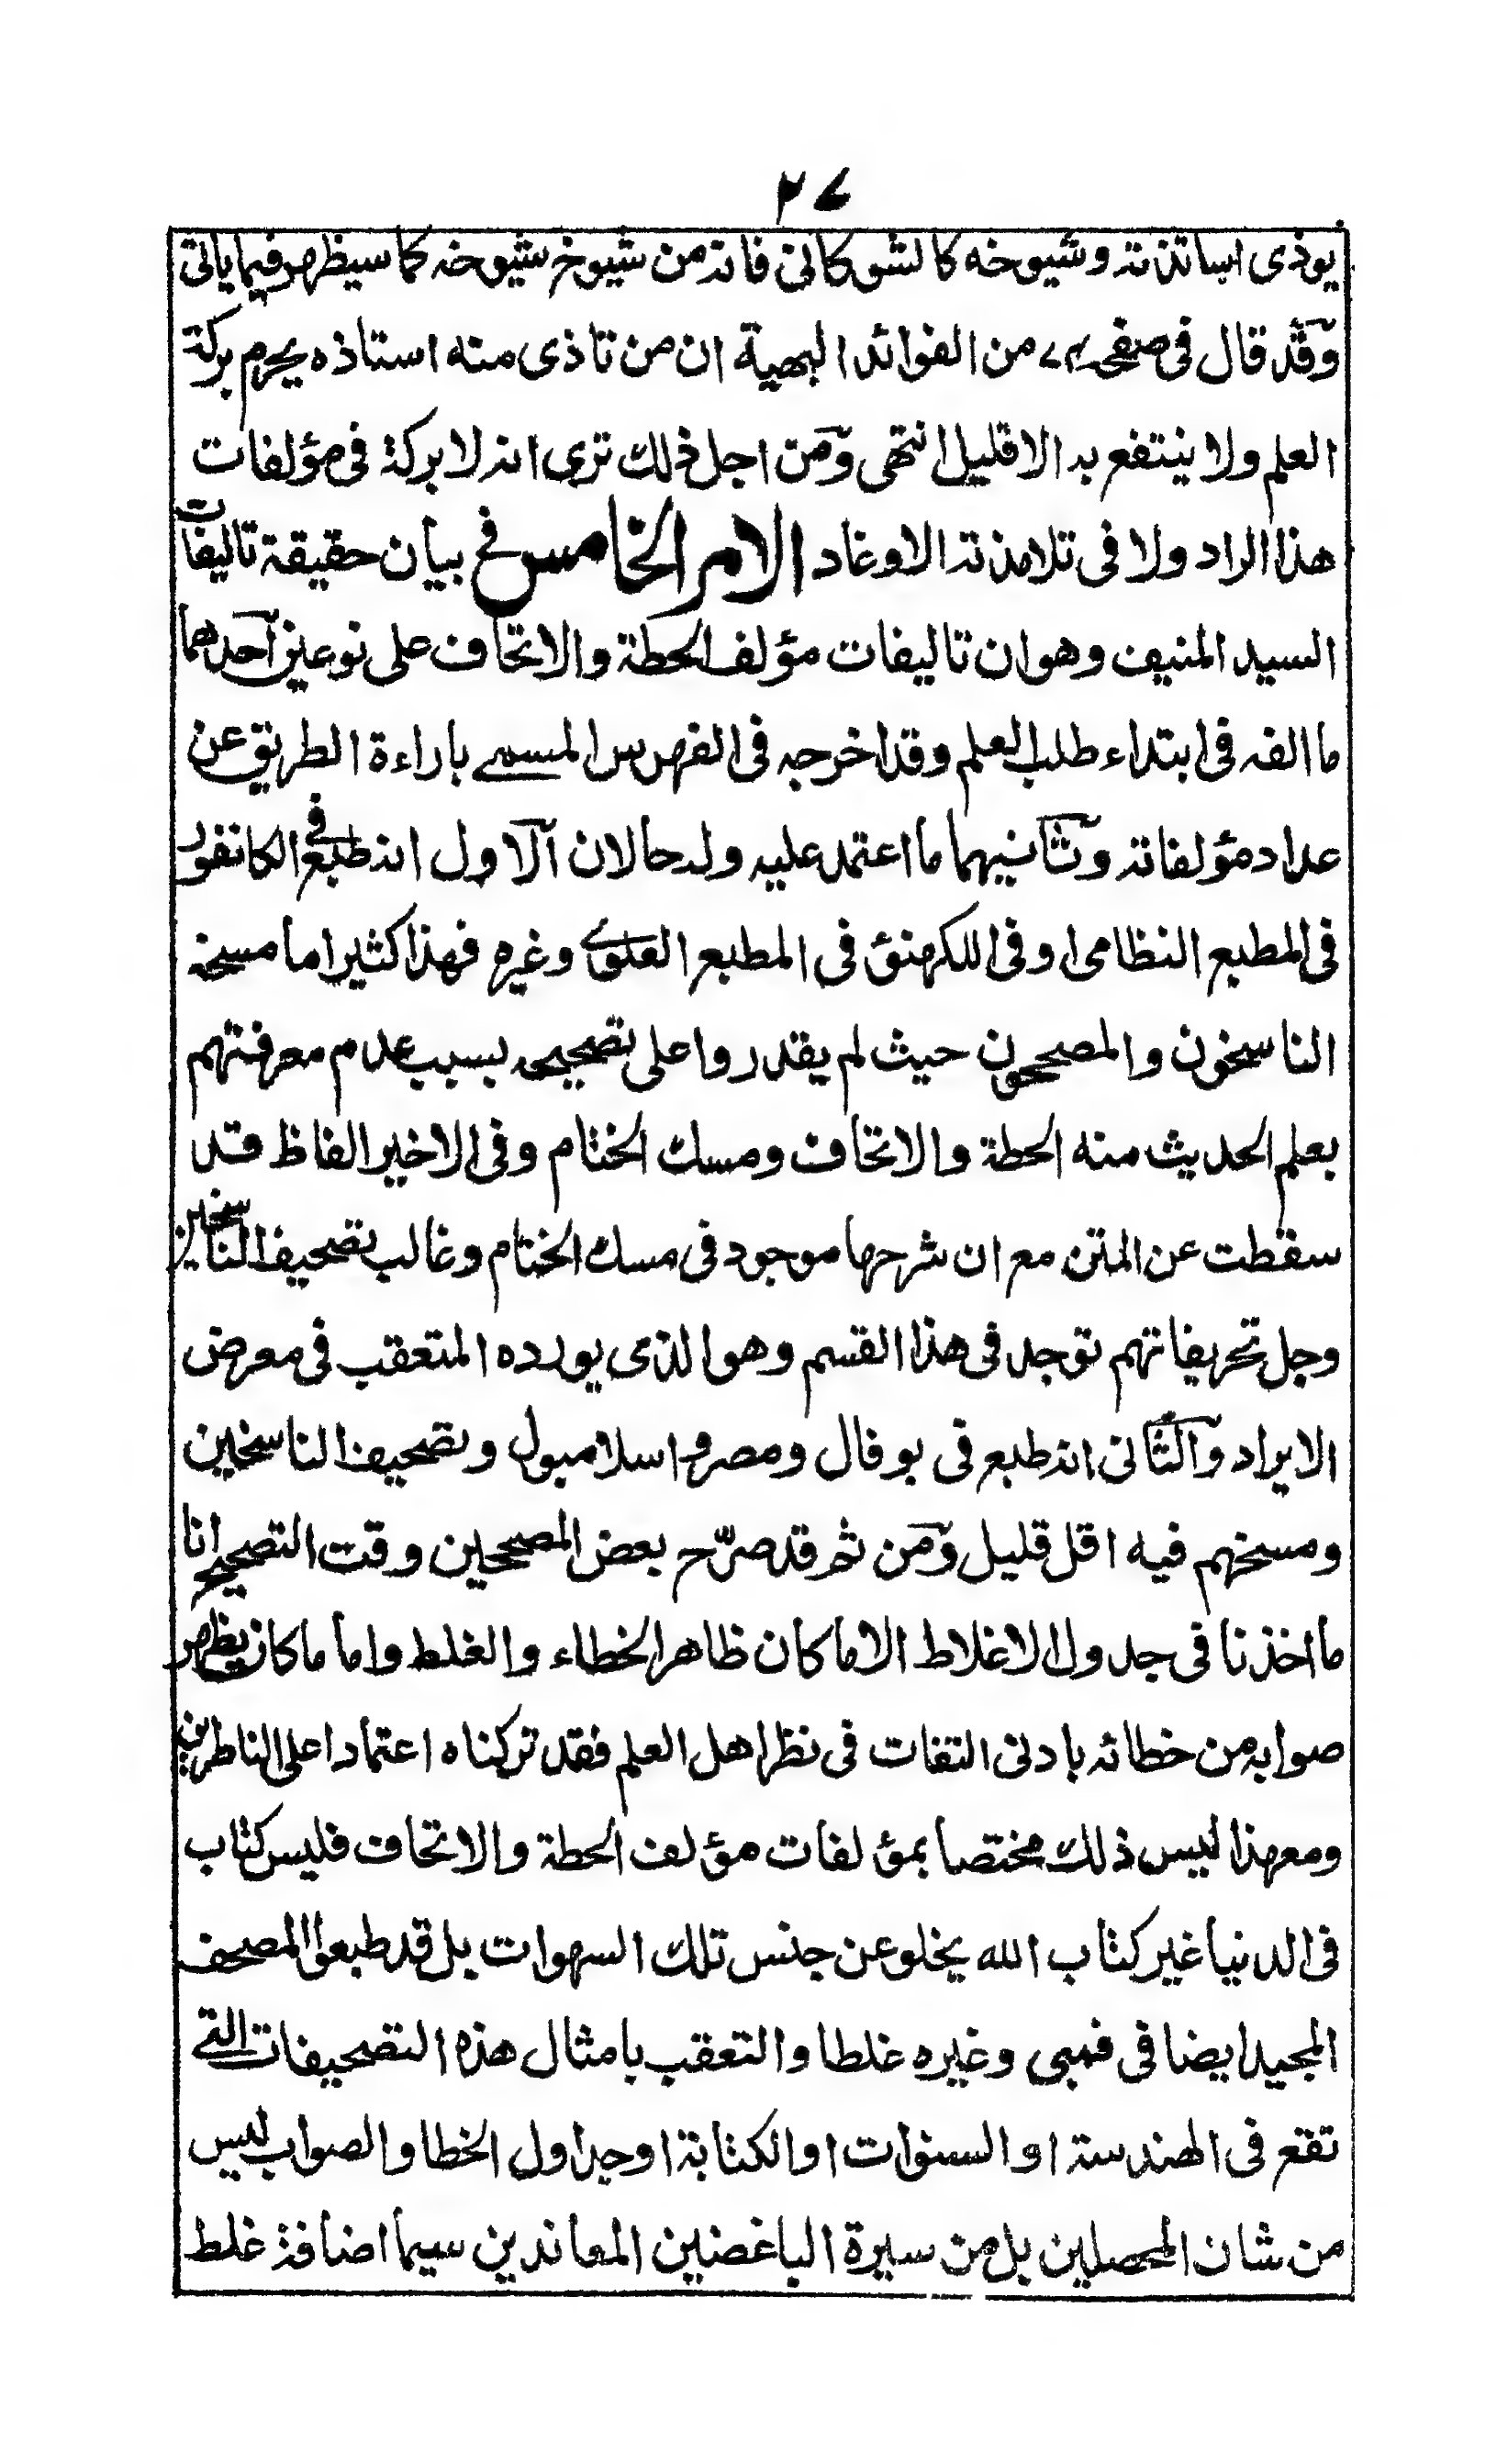 ٢٧
يوذى اساتذته وشيوخه كالشوكانى فانه من شيوخ شيوخه كما سيظهر فيما ياتى
وقد قال فى صفحه من الفوائد البهية ان من تاذى منه استاذه يحرم بركة
العلم ولا ينتفع به الا قليل انتهى ومن اجل ذلك ترى انه لا بركة فى مؤلفات
هذا الراد ولا فى تلامذته الاوغاد الامر الخامس فى بيان حقيقة تاليفات
السيد المنيف وهو ان تاليفات مؤلف الحطة والاتحاف على نوعين احدهما
ما الفه فى ابتداء طلب العلم وقد اخرجه فى الفهرس المسمى باراءة الطريق عن
عداد مؤلفاته وثانيهما ما اعتمد عليه وله حالان الاول انه طبع فى الكانفور
فى المطبع النظامى او فى اللكهنئ فى المطبع العلوى وغيره فهذا كثيرا ما مسخه
الناسخون والمصححون حيث لم يقدروا على تصحيحه بسبب عدم معرفتهم
بعلم الحديث منه الحطة والاتحاف ومسك الختام وفى الاخير الفاظ قد
سقطت عن المتن مع ان شرحها موجود فى مسك الختام وغالب تصحيف الناسخين
وجل تحريفاتهم توجد فى هذا القسم وهو الذى يورده المتعقب فى معرض
الايراد والثانى انه طبع فى بوفال ومصر واسلامبول وتصحيف الناسخين
ومسخهم فيه اقل قليل ومن ثم قد صرّح بعض المصححين وقت التصحيح انا
ما اخذنا فى جدول الاغلاط الا ما كان ظاهر الخطاء والغلط واما ما كان يظهر
صوابه من خطائه بادنى التفات فى نظر اهل العلم فقد تركناه اعتمادا على الناظرين
ومع هذا ليس ذلك مختصا بمؤلفات مؤلف الحطة والاتحاف فليس كتاب
فى الدنيا غير كتاب الله يخلو عن جنس تلك السهوات بل قد طبعوا المصحف
المجيد ايضا فى فمبى وغيره غلطا والتعقب بامثال هذه التصحيفات التى
تقع فى الهندسة او السنوات او الكتابة او جداول الخطا والصواب ليس
من شان المحصلين بل من سيرة الباغضين المعاندين سيما اضافة غلط